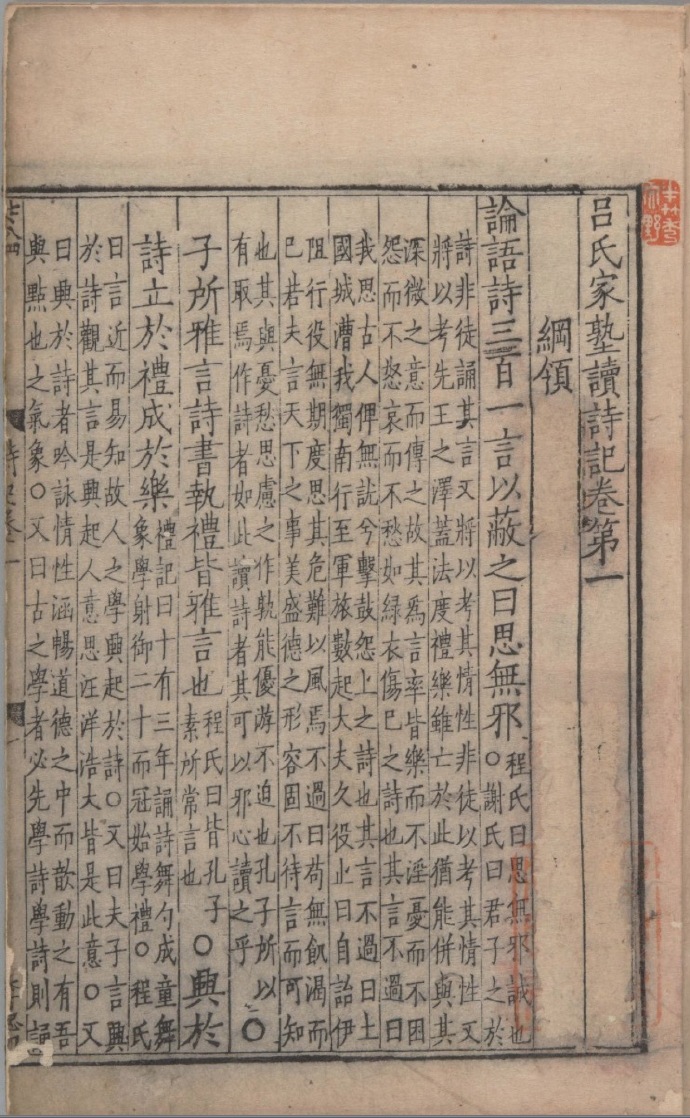 呂氏家塾讀詩記卷第一
綱領
論語詩三百一言以蔽之曰思無邪
程氏曰思無邪誠也
○謝氏曰君子之於
詩非徒誦其言又將以考其情性非徒以考其情性又
將以考先王之澤蓋法度禮樂雖亡於此猶能併與其
深微之意而傳之故其爲言率皆樂而不淫憂而不困
怨而不怒哀而不愁如綠衣傷已之詩也其言不過曰
我思古人俾無訧兮擊鼓怨上之詩也其言不過曰土
國城漕我獨南行至軍旅數起大夫久役止曰自詒伊
阻行役無期度思其危難以風焉不過曰苟無飢渴而
已若夫言天下之事美盛德之形容固不待言而可知
也其與憂愁思慮之作孰能優游不迫也孔子所以
有取焉作詩者如此讀詩者其可以邪心讀之乎
○
子所雅言詩書執禮皆雅言也
程氏曰皆孔子
素所常言也
○興於
詩立於禮成於樂
禮記曰十有三年誦詩舞勺成童舞
象學射御二十而冠始學禮○程氏
曰言近而易知故人之學興起於詩○又曰夫子言興
於詩觀其言是興起人意思汪洋浩大皆是此意○又
曰興於詩者吟詠情性涵暢道德之中而歆動之有吾
與點也之氣象○又曰古之學者必先學詩學詩則誦